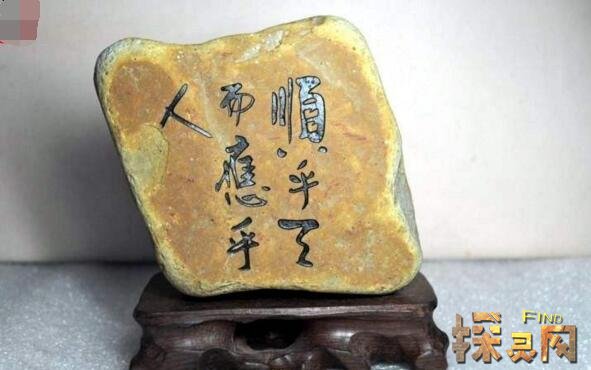 順乎天
而應乎
人
FIND
探灵网